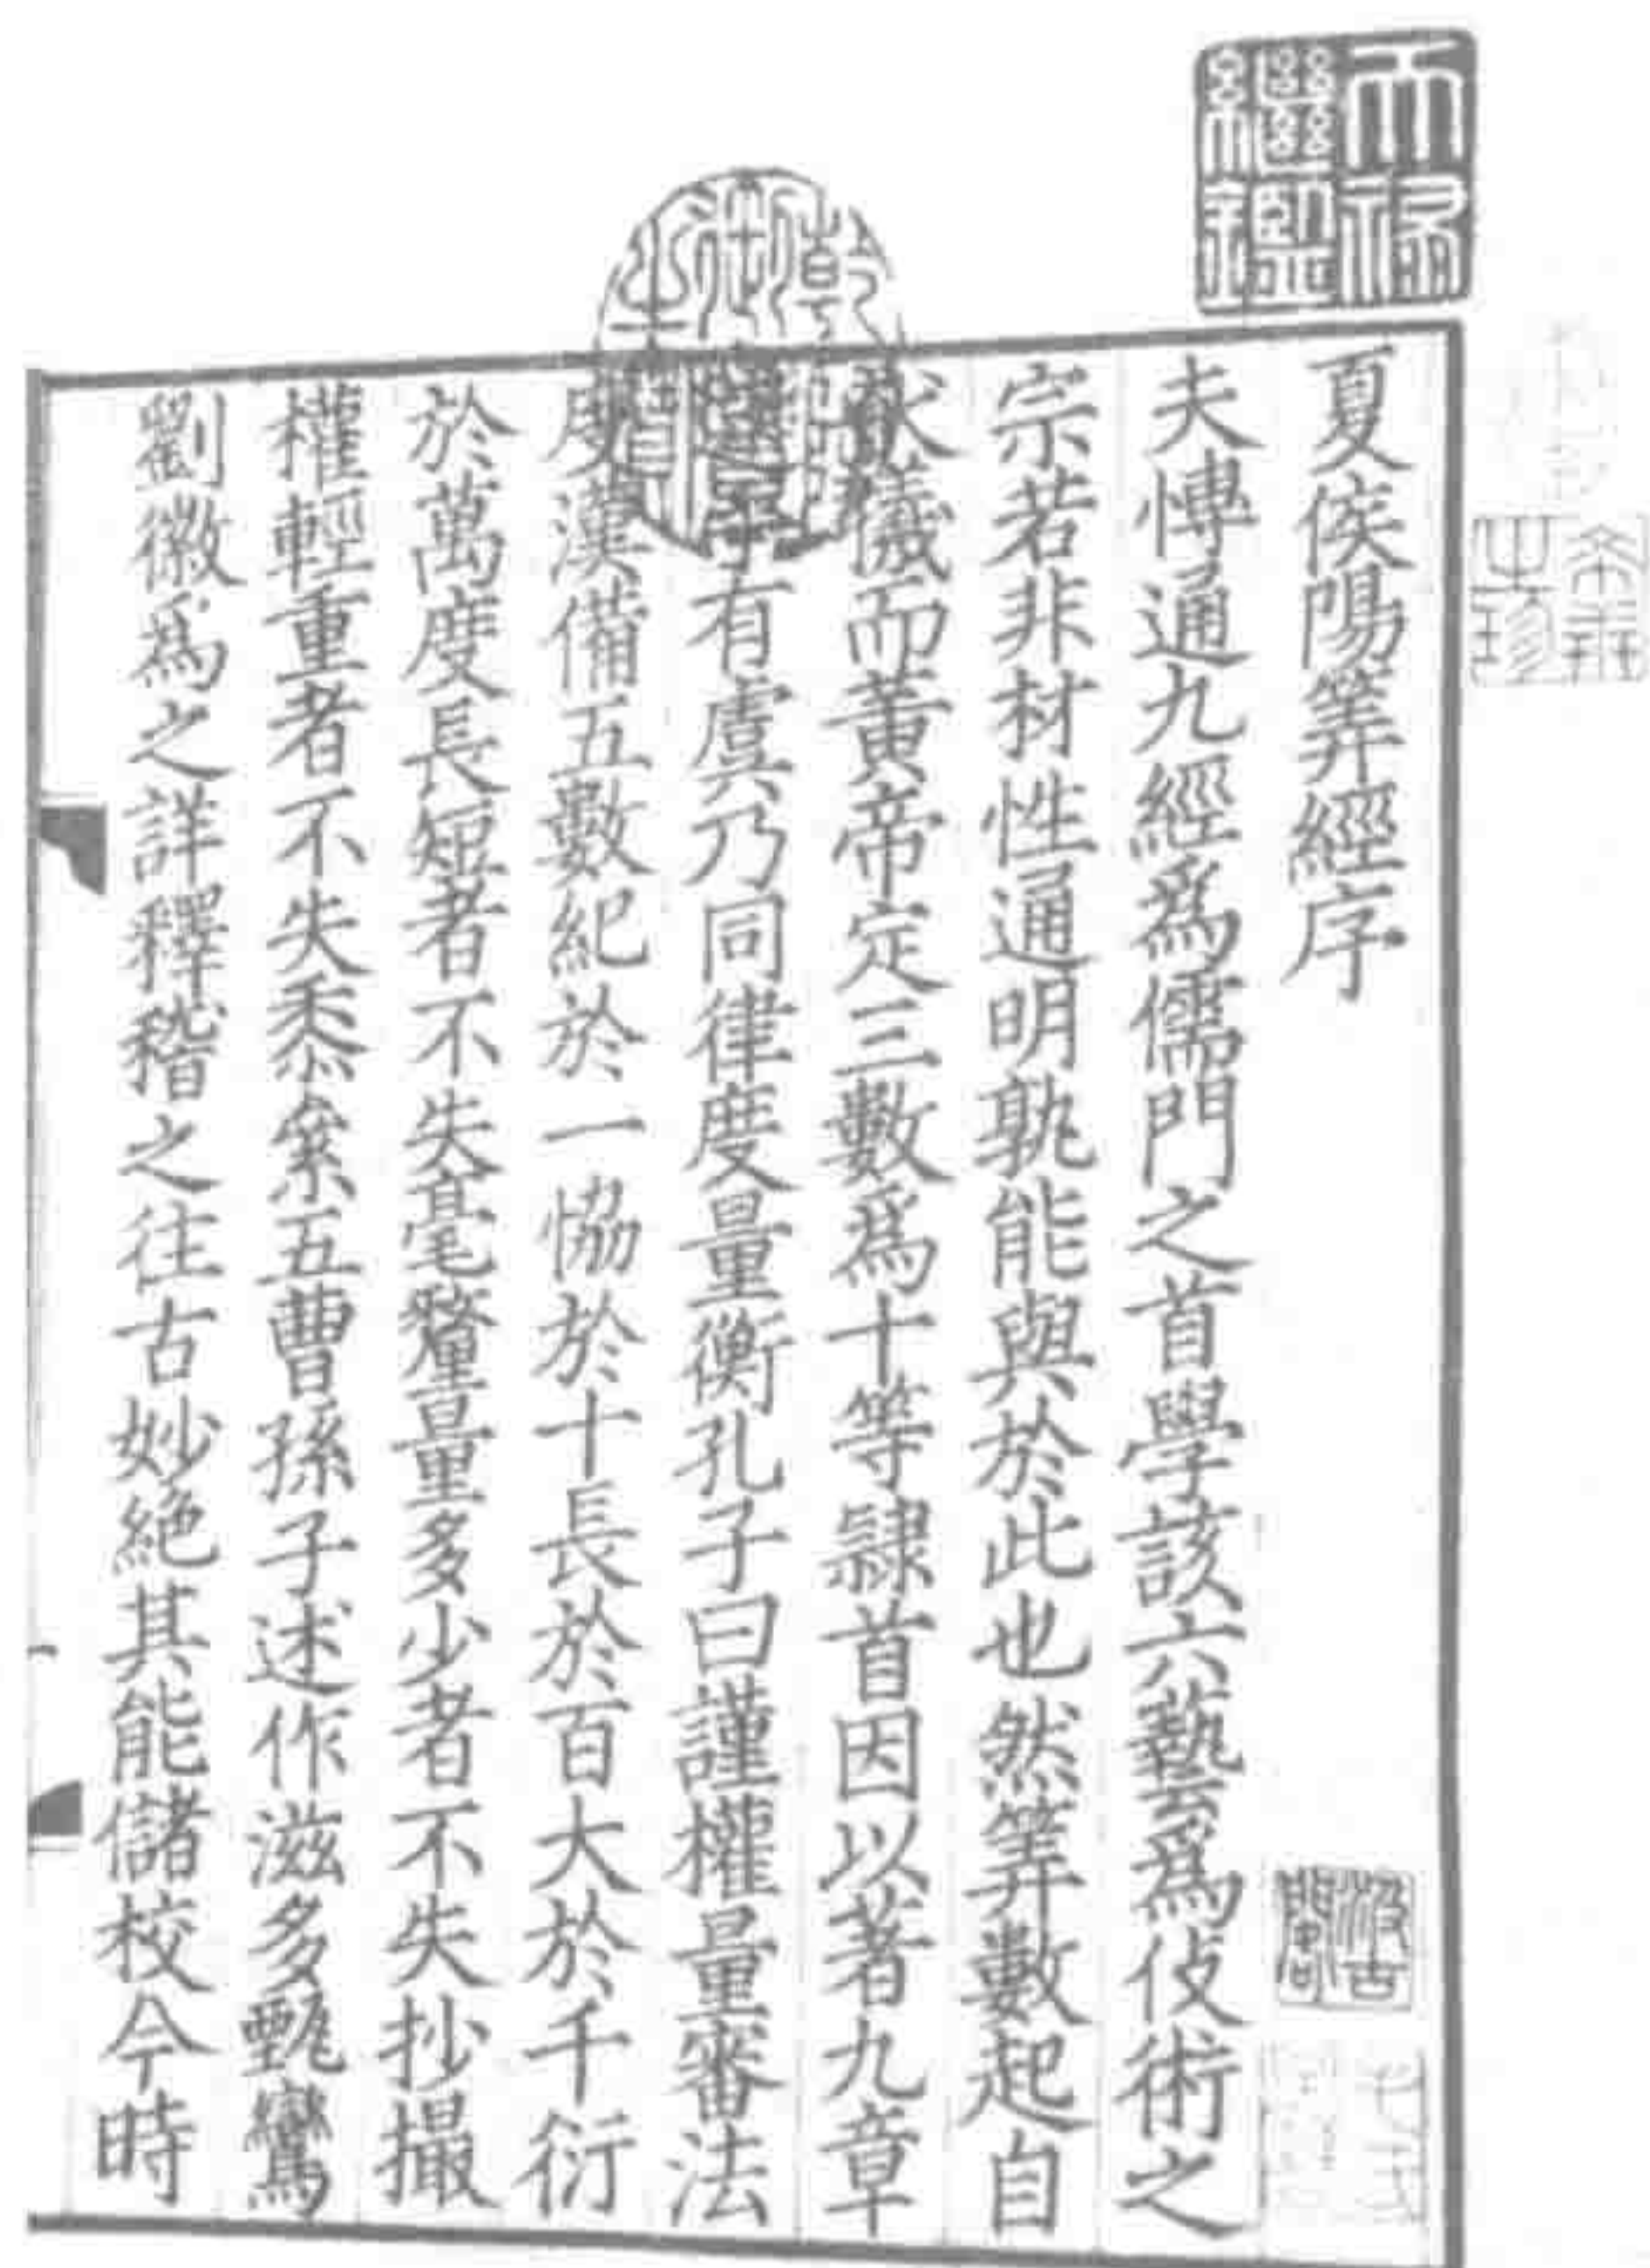 天祿繼鑑
乾隆御覽之寶
希世之珍
夏侯陽筭經序
夫愽通九經爲儒門之首學該六藝爲伎術之
宗若非材性通明孰能與於此也然筭數起自
伏儀而黃帝定三數爲十等隷首因以著九章
有虞乃同律度量衡孔子曰謹權量審法
度漢備五數紀於一恊於十長於百大於千衍
於萬度長短者不失毫釐量多少者不失抄撮
權輕重者不失黍絫五曹孫子述作滋多甄鸞
劉徽爲之詳釋稽之往古妙絶其能儲校今時
汲古閣